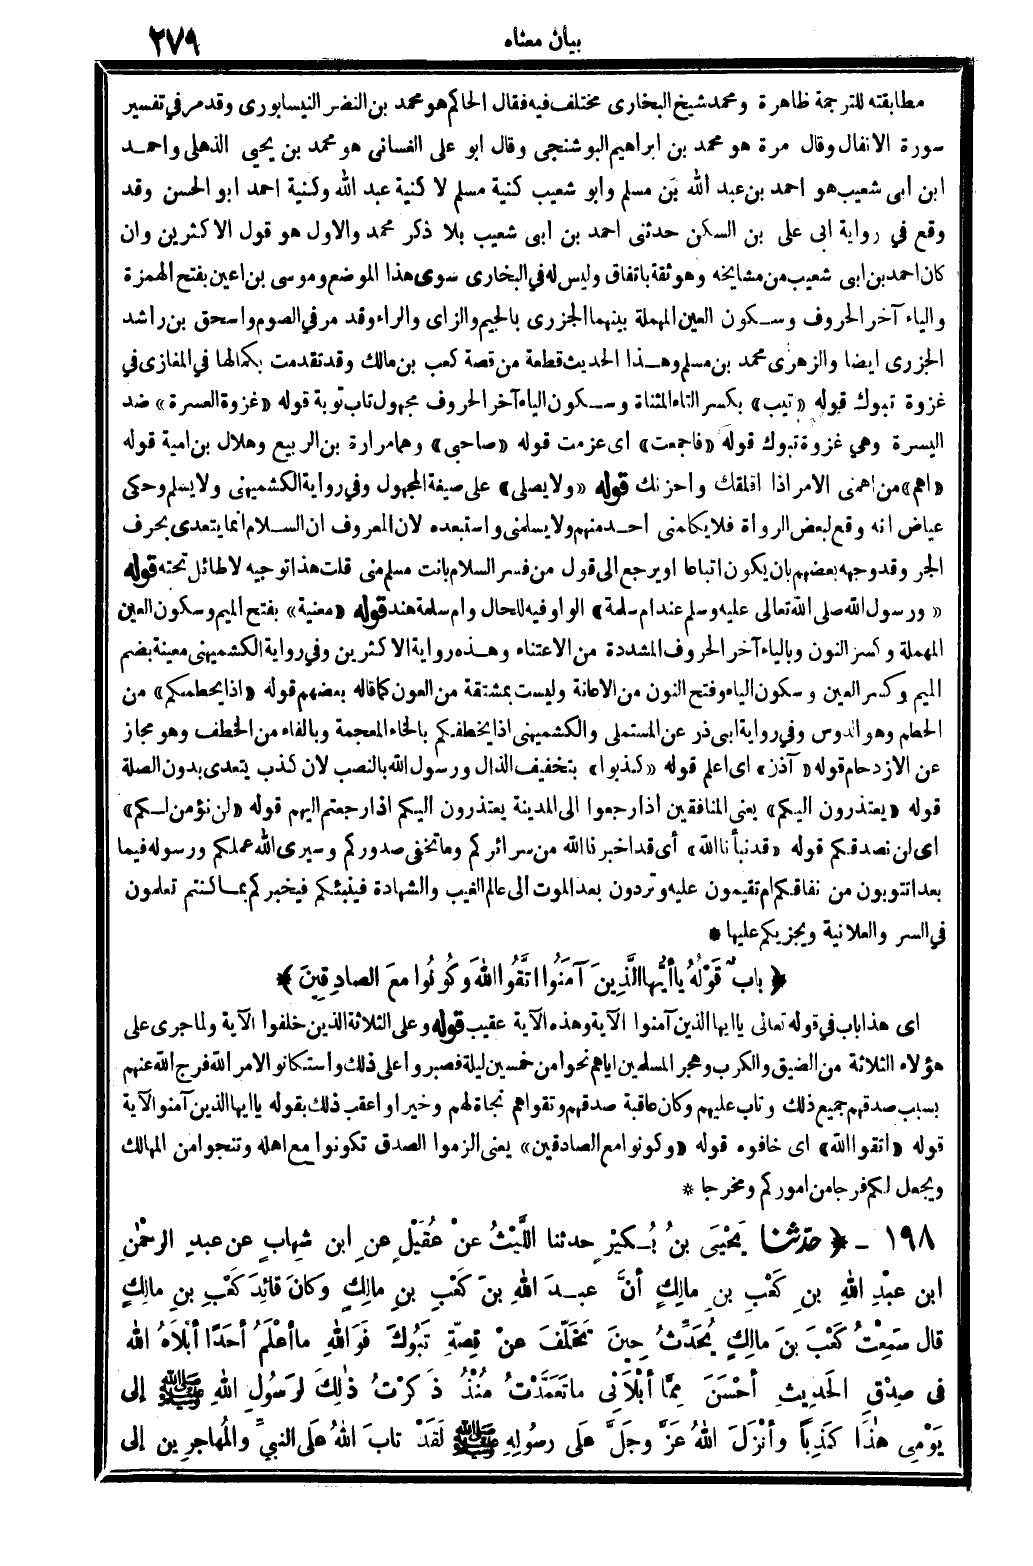 بيان معناه ٢٧٩
مطابقته للترجمة ظاهرة ومحمد شيخ البخارى مختلف فيه فقال الحاكم هو محمد بن النضر النيسابورى وقد مر في تفسير
سورة الانفال وقال مرة هو محمد بن ابراهيم البوشنجى وقال ابو على الغسانى هو محمد بن يحيى الذهلى واحمد
ابن ابى شعيب هو احمد بن عبد الله بن مسلم وابو شعيب كنية مسلم لا كنية عبد الله وكنية احمد ابو الحسن وقد
وقع في رواية ابى على بن السكن حدثنى احمد بن ابى شعيب بلا ذكر محمد والاول هو قول الاكثرين وان
كان احمد بن ابى شعيب من مشايخه وهو ثقة باتفاق وليس له في البخارى سوى هذا الموضع وموسى بن اعين بفتح الهمزة
والياء آخر الحروف وسكون العين المهملة بينهما الجزرى بالجيم والزاى والراء وقد مر في الصوم واسحق بن راشد
الجزرى ايضا والزهرى محمد بن مسلم وهذا الحديث قطعة من قصة كعب بن مالك وقد تقدمت بكمالها في المغازى في
غزوة تبوك قوله «تيب» بكسر التاء المثناة وسكون الياء آخر الحروف مجهول تاب توبة قوله «غزوة العسرة» ضد
اليسرة وهي غزوة تبوك قوله «فاجمعت» اى عزمت قوله «صاحبى» وهما مرارة بن الربيع وهلال بن امية قوله
«اهم» من اهمنى الامر اذا اقلقك واحزنك قوله «ولا يصلى» على صيغة المجهول وفي رواية الكشميهنى ولا يسلم وحكى
عياض انه وقع لبعض الرواة فلا يكلمنى احد منهم ولا يسلمنى واستبعده لان المعروف ان السلام انما يتعدى بحرف
الجر وقد وجهه بعضهم بان يكون اتباعا او يرجع الى قول من فسر السلام بانت مسلم منى قلت هذا توجيه لا طائل تحته قوله
«ورسول الله صلى الله تعالى عليه وسلم عند ام سلمة» الواو فيه للحال وام سلمة هند قوله «معنية» بفتح الميم وسكون العين
المهملة وكسر النون وبالياء آخر الحروف المشددة من الاعتناء وهذه رواية الاكثرين وفي رواية الكشميهنى معينة بضم
الميم وكسر العين وسكون الياء وفتح النون من الاعانة وليست بمشتقة من العون كما قاله بعضهم قوله «اذا يحطمكم» من
الحطم وهو الدوس وفي رواية ابى ذر عن المستملى والكشميهنى اذا يخطفكم بالخاء المعجمة وبالفاء من الخطف وهو مجاز
عن الازدحام قوله «آذن» اى اعلم قوله «كذبوا» بتخفيف الذال ورسول الله بالنصب لان كذب يتعدى بدون الصلة
قوله «يعتذرون اليكم» يعنى المنافقين اذا رجعوا الى المدينة يعتذرون اليكم اذا رجعتم اليهم قوله «لن نؤمن لكم»
اى لن نصدقكم قوله «قد نبأنا الله» أى قد اخبرنا الله من سرائركم وما تخفى صدوركم وسيرى الله عملكم ورسوله فيما
بعد اتتوبون من نفاقكم ام تقيمون عليه وتردون بعد الموت الى عالم الغيب والشهادة فينبئكم فيخبركم بما كنتم تعلمون
في السر والعلانية ويجزيكم عليها *
﴿ بابٌ قَوْلُهُ ياأيُّها الَّذِينَ آمَنُوا اتَّقُوا اللهَ وكُونُوا معَ الصادِقِينَ ﴾
اى هذا باب في قوله تعالى يا ايها الذين آمنوا الآية وهذه الآية عقيب قوله وعلى الثلاثة الذين خلفوا الآية ولما جرى على
هؤلاء الثلاثة من الضيق والكرب وهجر المسلمين اياهم نحوا من خمسين ليلة فصبروا على ذلك واستكانوا لامر الله فرج الله عنهم
بسبب صدقهم جميع ذلك وتاب عليهم وكان عاقبة صدقهم وتقواهم نجاة لهم وخيرا واعقب ذلك بقوله يا ايها الذين آمنوا الآية
قوله «اتقوا الله» اى خافوه قوله «وكونوا مع الصادقين» يعنى الزموا الصدق تكونوا مع اهله وتنجوا من المهالك
ويجعل لكم فرجا من اموركم ومخرجا *
١٩٨ - ﴿ حدّثنا يَحْيَى بنُ بُكَيْرٍ حدثنا اللَّيْثُ عنْ عُقَيْلٍ عنِ ابنِ شِهابٍ عن عبدِ الرحْمٰنِ
ابنِ عبْدِ اللهِ بنِ كَعْبِ بنِ مالِكٍ أنَّ عبدَ اللهِ بنَ كَعْبِ بنِ مالِكٍ وكانَ قائِدَ كَعْبِ بنِ مالِكٍ
قال سَمِعْتُ كَعْبَ بنَ مالِكٍ يُحَدِّثُ حِينَ تَخَلَّفَ عنْ قِصَّةِ تَبُوكَ فَوَاللهِ ماأعْلَمُ أحَدًا أبْلاَهُ الله
في صِدْقِ الحَدِيثِ أحْسَنَ مِمَّا أبْلاَنِى ماتَعَمَّدْتُ مُنْذُ ذَكَرْتُ ذٰلِكَ لِرَسُولِ اللهِ ﷺ إلى
يَوْمِى هٰذَا كَذِبًا وأنْزَلَ اللهُ عَزَّ وجَلَّ عَلَى رسُولِهِ ﷺ لَقَدْ تابَ اللهُ علَى النبيِّ والْمُهاجِرِينَ إلى